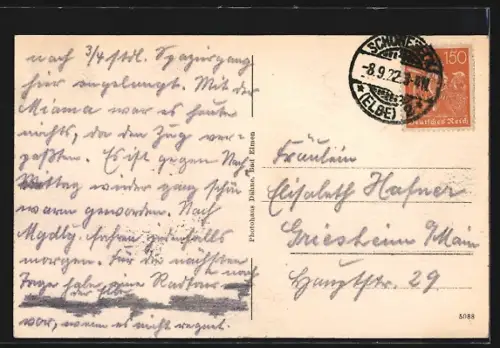 nach 3/4 stdl. Spaziergang
hier angelangt. Mit der
Miama war es heute
nichts, da den Zug ver-
paßten. Es ist gegen Nach-
Mittag wieder ganz schön
warm geworden. Nach
Mgdbg. fahren jedenfalls
morgen. Für die nächsten
Tage habe eine Radtour nach
der Elbe
vor, wenn es nicht regnet.
Photohaus Dühne, Bad Elmen
SCHÖNEBECK
-8.9.22.
* (ELBE)
150
Deutsches Reich
Fräulein
Elisabeth Hafner
Griesheim /Main
Hauptstr. 29
5088